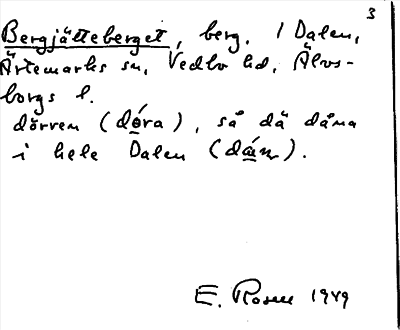 3
Bergjätteberget, berg. I Dalen,
Ärtemarks sn, Vedbo hd, Älvs-
borgs l.
dörren (dóra), så dä dåna
i hele Dalen
E. Rosen 1949